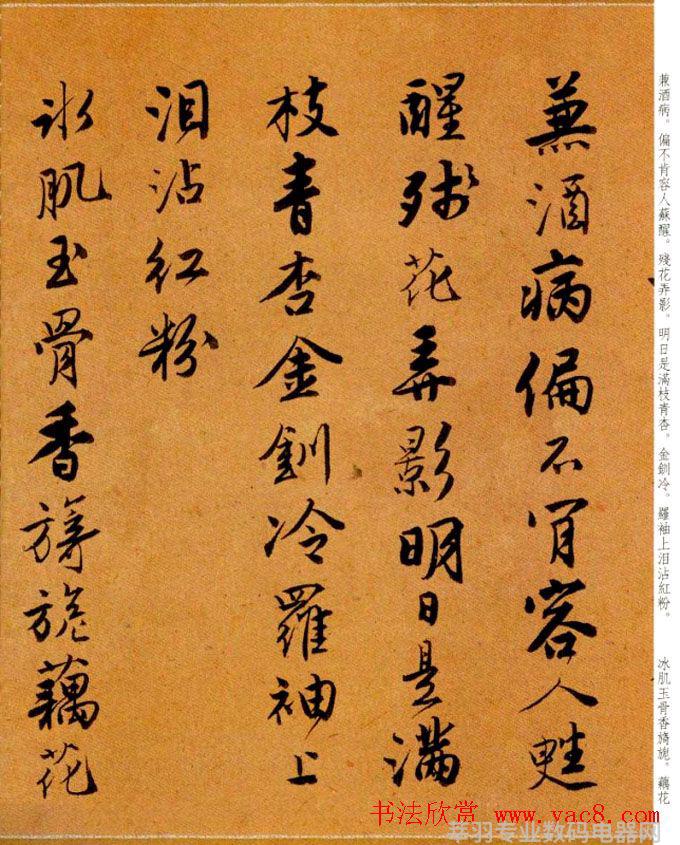 兼酒病偏不肯容人甦
醒殘花弄影明日是滿
枝青杏金釧冷羅袖上
泪沾紅粉
冰肌玉骨香旖旎藕花
兼酒病。偏不肯容人蘇醒。殘花弄影。明日是滿枝青杏。金釧冷。羅袖上泪沾紅粉。　冰肌玉骨香旖旎。藕花
书法欣赏 www.yac8.com
莘羽专业数码电器网